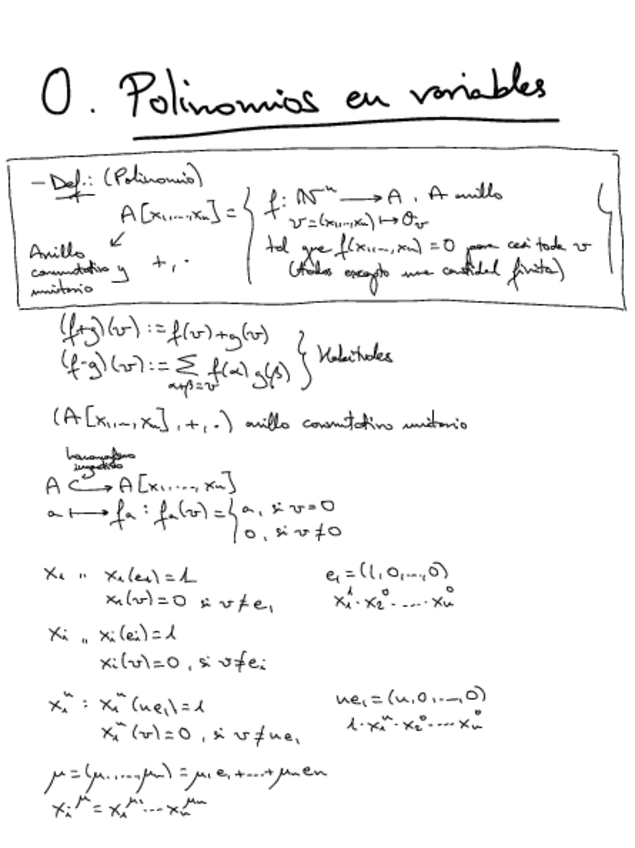 0. Polinomios en variables
- Def.: (Polinomio)
A[x₁,...,xₙ] = { f: ℕⁿ → A, A anillo
v=(x₁,...,xₙ) ↦ σᵥ
tal que f(x₁,...,xₙ) = 0 para casi todo v
(todos excepto una cantidad finita) }
Anillo
conmutativo y
unitario
+, ·
(f+g)(v) := f(v)+g(v)
(f·g)(v) := ∑_{α+β=v} f(α) g(β) } Habituales
(A[x₁,...,xₙ], +, ·) anillo conmutativo unitario
homomorfismo
inyectivo
A ↪ A[x₁,...,xₙ]
a ↦ fₐ : fₐ(v) = { a, si v=0
0, si v≠0
x₁ " x₁(e₁)=1 e₁=(1,0,...,0)
x₁(v)=0 si v≠e₁ x₁¹·x₂⁰·....·xₙ⁰
xᵢ " xᵢ(eᵢ)=1
xᵢ(v)=0, si v≠eᵢ
x₁ⁿ : x₁ⁿ(ne₁)=1 ne₁=(n,0,...,0)
x₁ⁿ(v)=0, si v≠ne₁ 1·x₁ⁿ·x₂⁰·....·xₙ⁰
μ=(μ₁,...,μₙ)=μ₁e₁+...+μₙeₙ
xᵢ^μ = x₁^μ₁...xₙ^μₙ